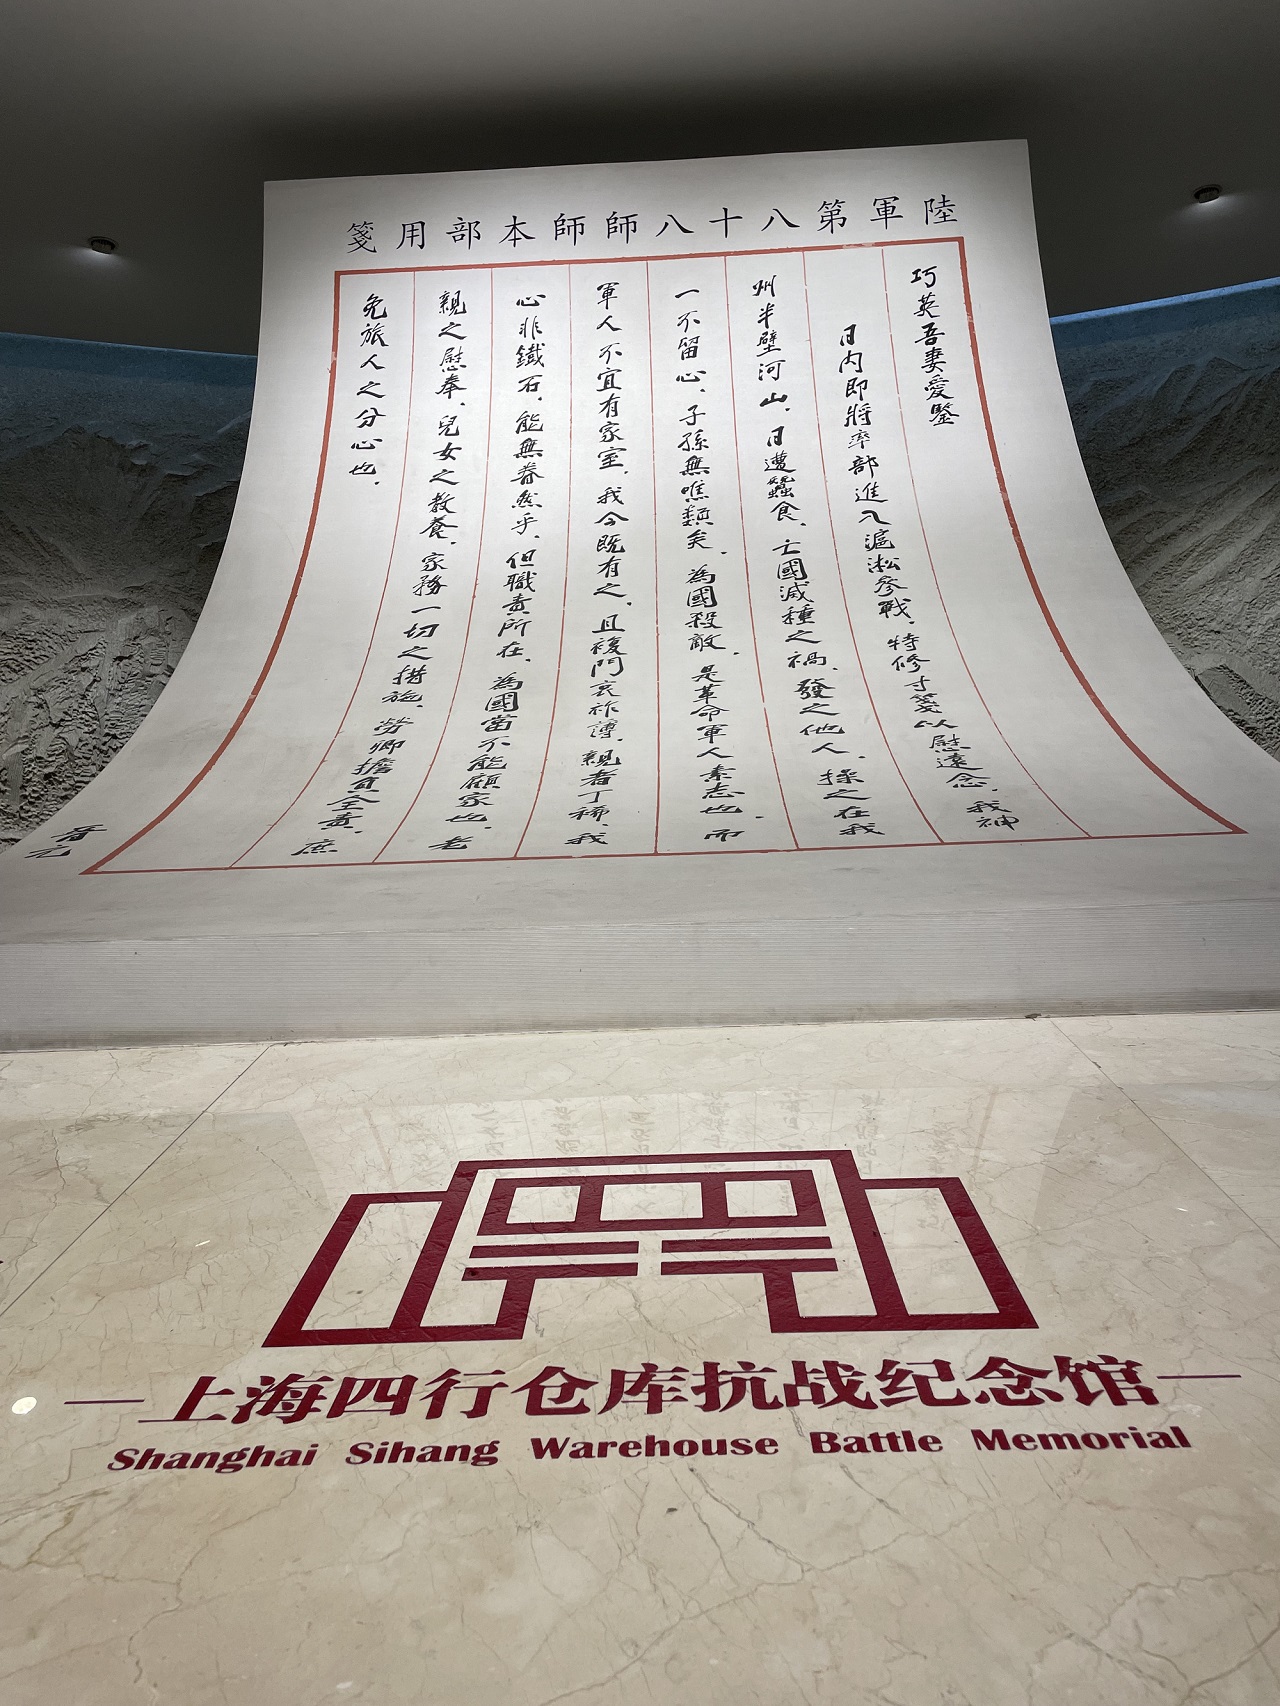 陸軍第八十八師師本部用箋
巧英吾妻愛鑒
日内即將率部進入滬淞參戰.特修寸箋以慰遠念.我神
州半壁河山.日遭蠶食.亡國滅種之禍.發之他人.操之在我
一不留心.子孫無噍類矣.為國殺敵.是革命軍人素志也.而
軍人不宜有家室.我今既有之.且複門衰祚薄.親者丁稀.我
心非鐵石.能無眷然乎.但職責所在.為國當不能顧家也.老
親之慰奉.兒女之教養.家務一切之措施.勞卿擔負全責.庶
免旅人之分心也.
晉元
上海四行仓库抗战纪念馆
Shanghai Sihang Warehouse Battle Memorial